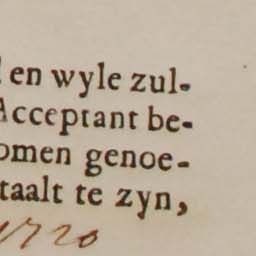 en wyle zul-
Acceptant be-
omen genoe-
taalt te zyn,
1720